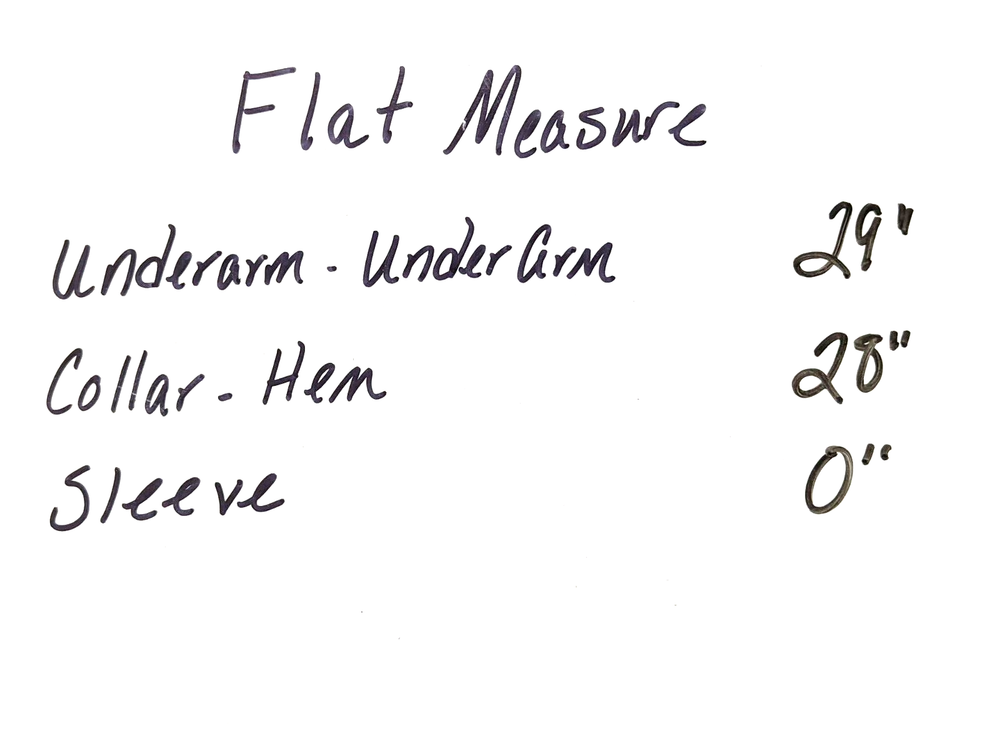 Flat Measure
Underarm - UnderArm 29"
Collar - Hem 28"
Sleeve 0"